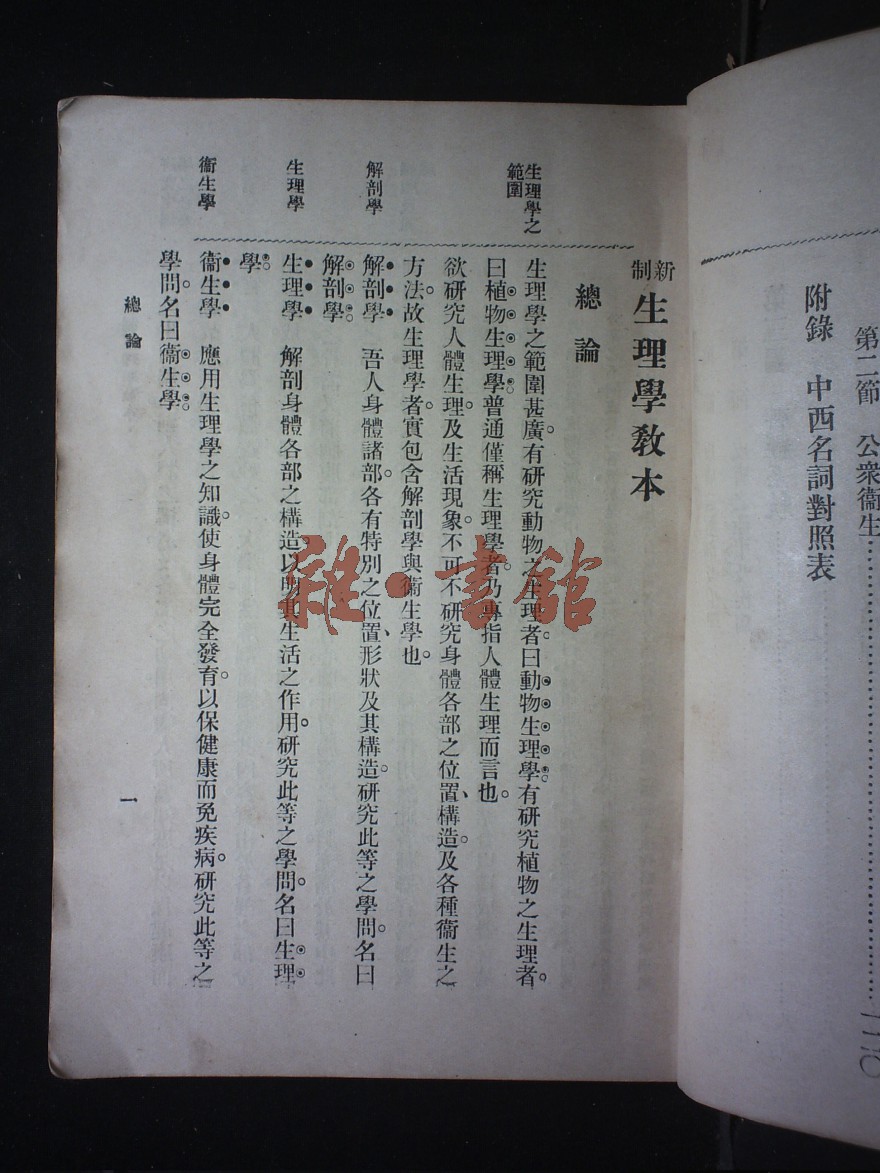 第二節 公衆衞生……………………………一一〇
附錄 中西名詞對照表
新制 生理學教本
總論
生理學之範圍
生理學之範圍甚廣。有研究動物之生理者。曰動物生理學。有研究植物之生理者。
曰植物生理學。普通僅稱生理學者。乃專指人體生理而言也。
欲研究人體生理。及生活現象。不可不研究身體各部之位置、構造。及各種衞生之
方法。故生理學者。實包含解剖學與衞生學也。
解剖學
解剖學 吾人身體諸部。各有特別之位置、形狀及其構造。研究此等之學問。名曰
解剖學。
生理學
生理學 解剖身體各部之構造。以明其生活之作用。研究此等之學問。名曰生理
學。
衞生學
衞生學 應用生理學之知識。使身體完全發育。以保健康而免疾病。研究此等之
學問。名曰衞生學。
總論
一
雜·書館